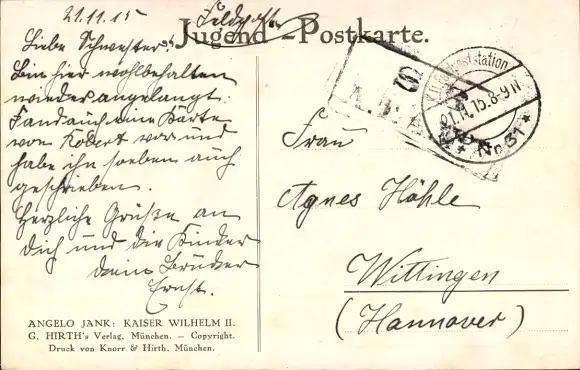 21.11.15
Feldpost
Jugend-Postkarte.
Liebe Schwester!
Bin hier wohlbehalten
wieder angelangt.
Fand auch eine Karte
von Robert vor und
habe ihn soeben auch
geschrieben.
Herzliche Grüße an
Dich und die Kinder
dein Bruder
Ernst.
21.11.15.8-9 N
No. 51
Frau
Agnes Höhle
Wittingen
(Hannover)
ANGELO JANK: KAISER WILHELM II.
G. HIRTH's Verlag, München. – Copyright.
Druck von Knorr & Hirth, München.